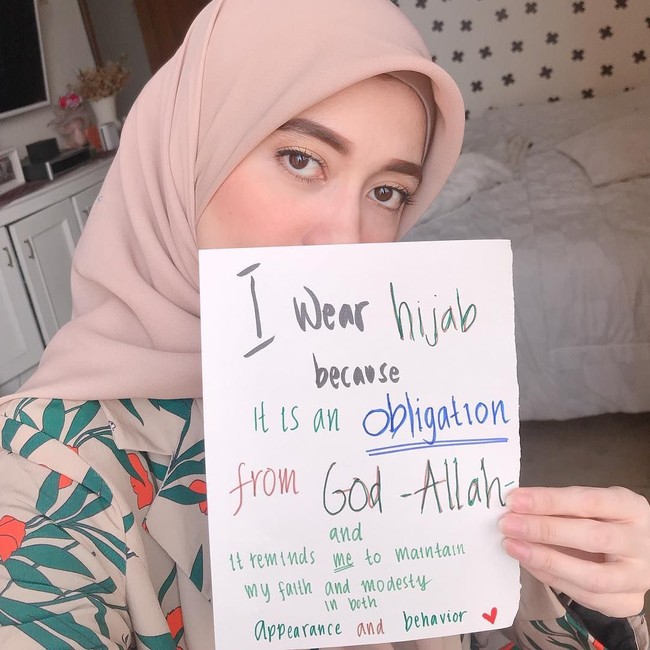 I wear hijab
because
it is an obligation
from God -Allah-
and
it reminds me to maintain
my faith and modesty
in both
appearance and behavior